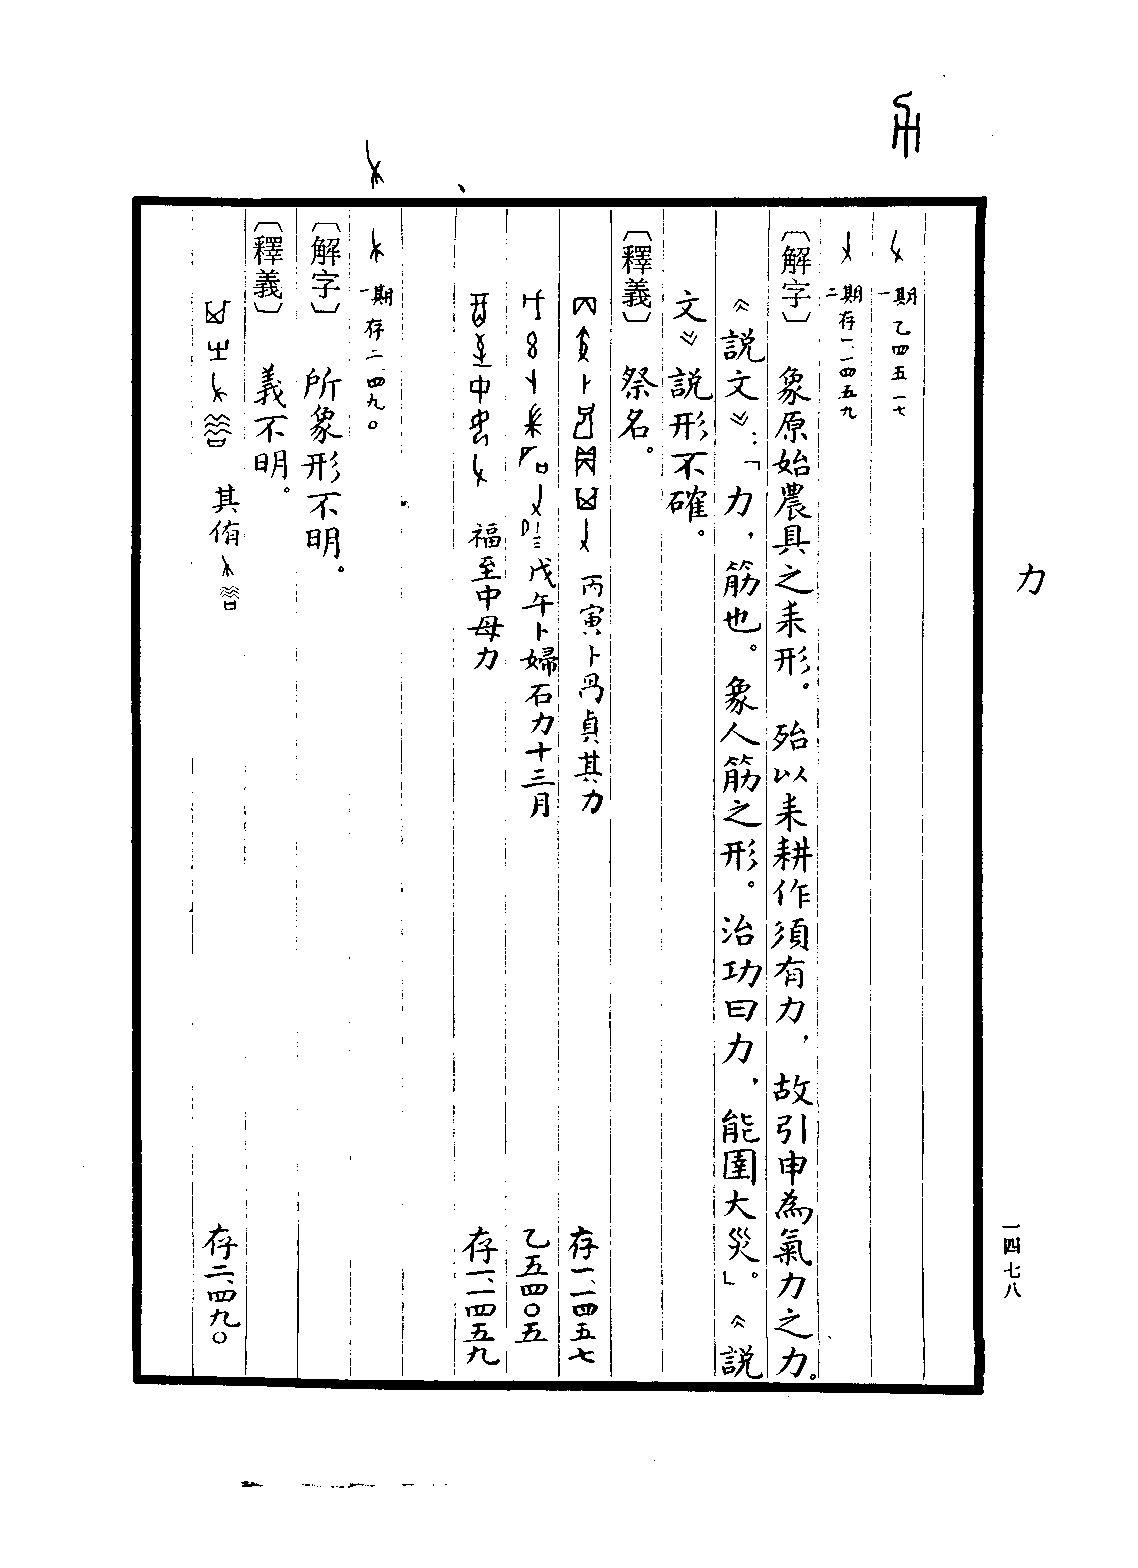 力
一四七八
一期 乙四五一七
二期 存一、一四五九
〔解字〕 象原始農具之耒形。殆以耒耕作須有力，故引申為氣力之力。
《説文》：「力，筋也。象人筋之形。治功曰力，能圉大災。」《説
文》説形不確。
〔釋義〕 祭名。
丙寅卜 貞其力 存一、一四五七
戊午卜婦石力十三月 乙五四〇五
福至中母力 存一、一四五九
一期 存二、四九〇
〔解字〕 所象形不明。
〔釋義〕 義不明。
其侑 存二、四九〇